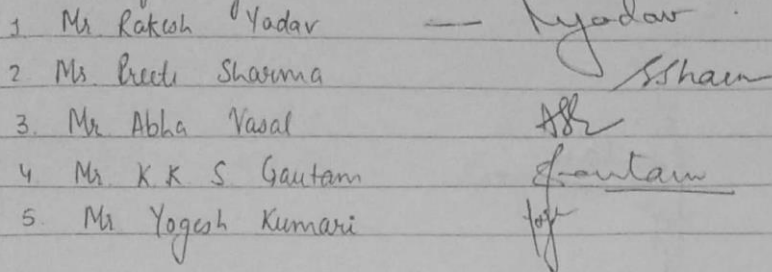 1 Mr Rakesh Yadav — Ryadav
2 Ms Preeti Sharma
3. Mr Abha Vasal
4 Mr K K S Gautam Gautam
5. Mr Yogesh Kumari